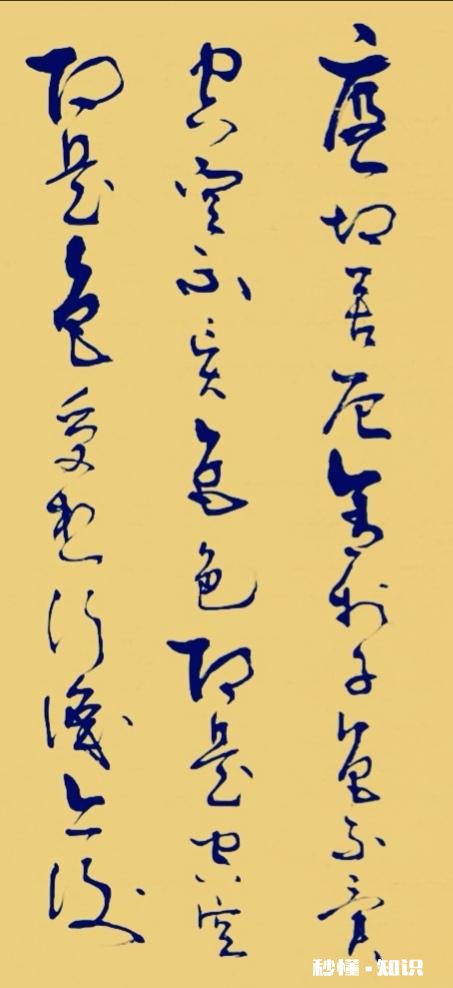 度一切苦厄舍利子色不異
空空不異色色即是空空
即是色受想行識亦復
秒懂·知识